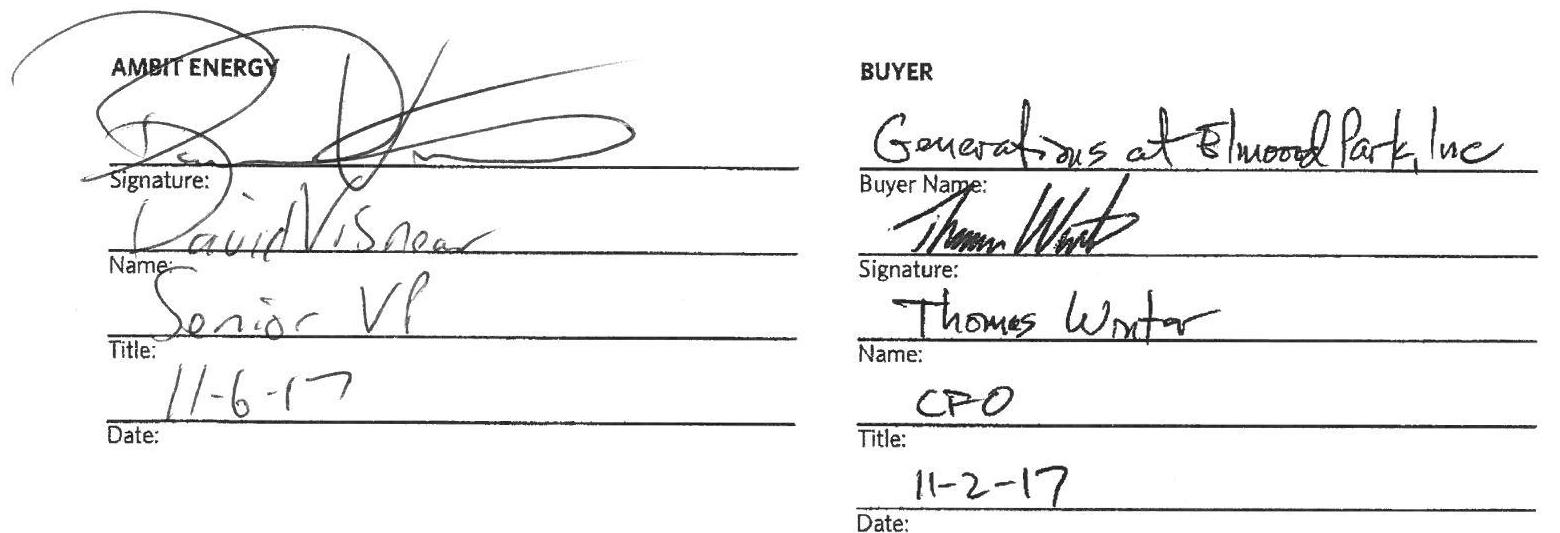 AMBIT ENERGY
Signature:
David Visnear
Name:
Senior VP
Title:
11-6-17
Date:
BUYER
Generations at Elmwood Park, Inc
Buyer Name:
Signature:
Thomas Winter
Name:
CFO
Title:
11-2-17
Date: